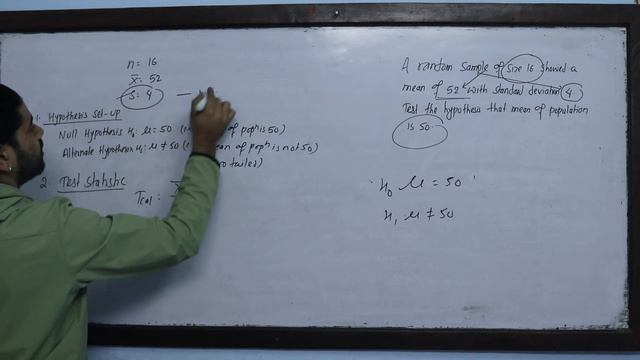 n = 16
x̄ = 52
S = 4 —
1. Hypothesis set-up
Null Hypothesis H₀: μ = 50 ( of popn is 50)
Alternate Hypothesis H₁: μ ≠ 50 ( mean of popn is not 50)
tailed)
2. Test Statistic
Tcal =
A random sample of size 16 showed a
mean of 52 with standard deviation 4.
Test the hypothesis that mean of population
is 50.
H₀ μ = 50
H₁ μ ≠ 50